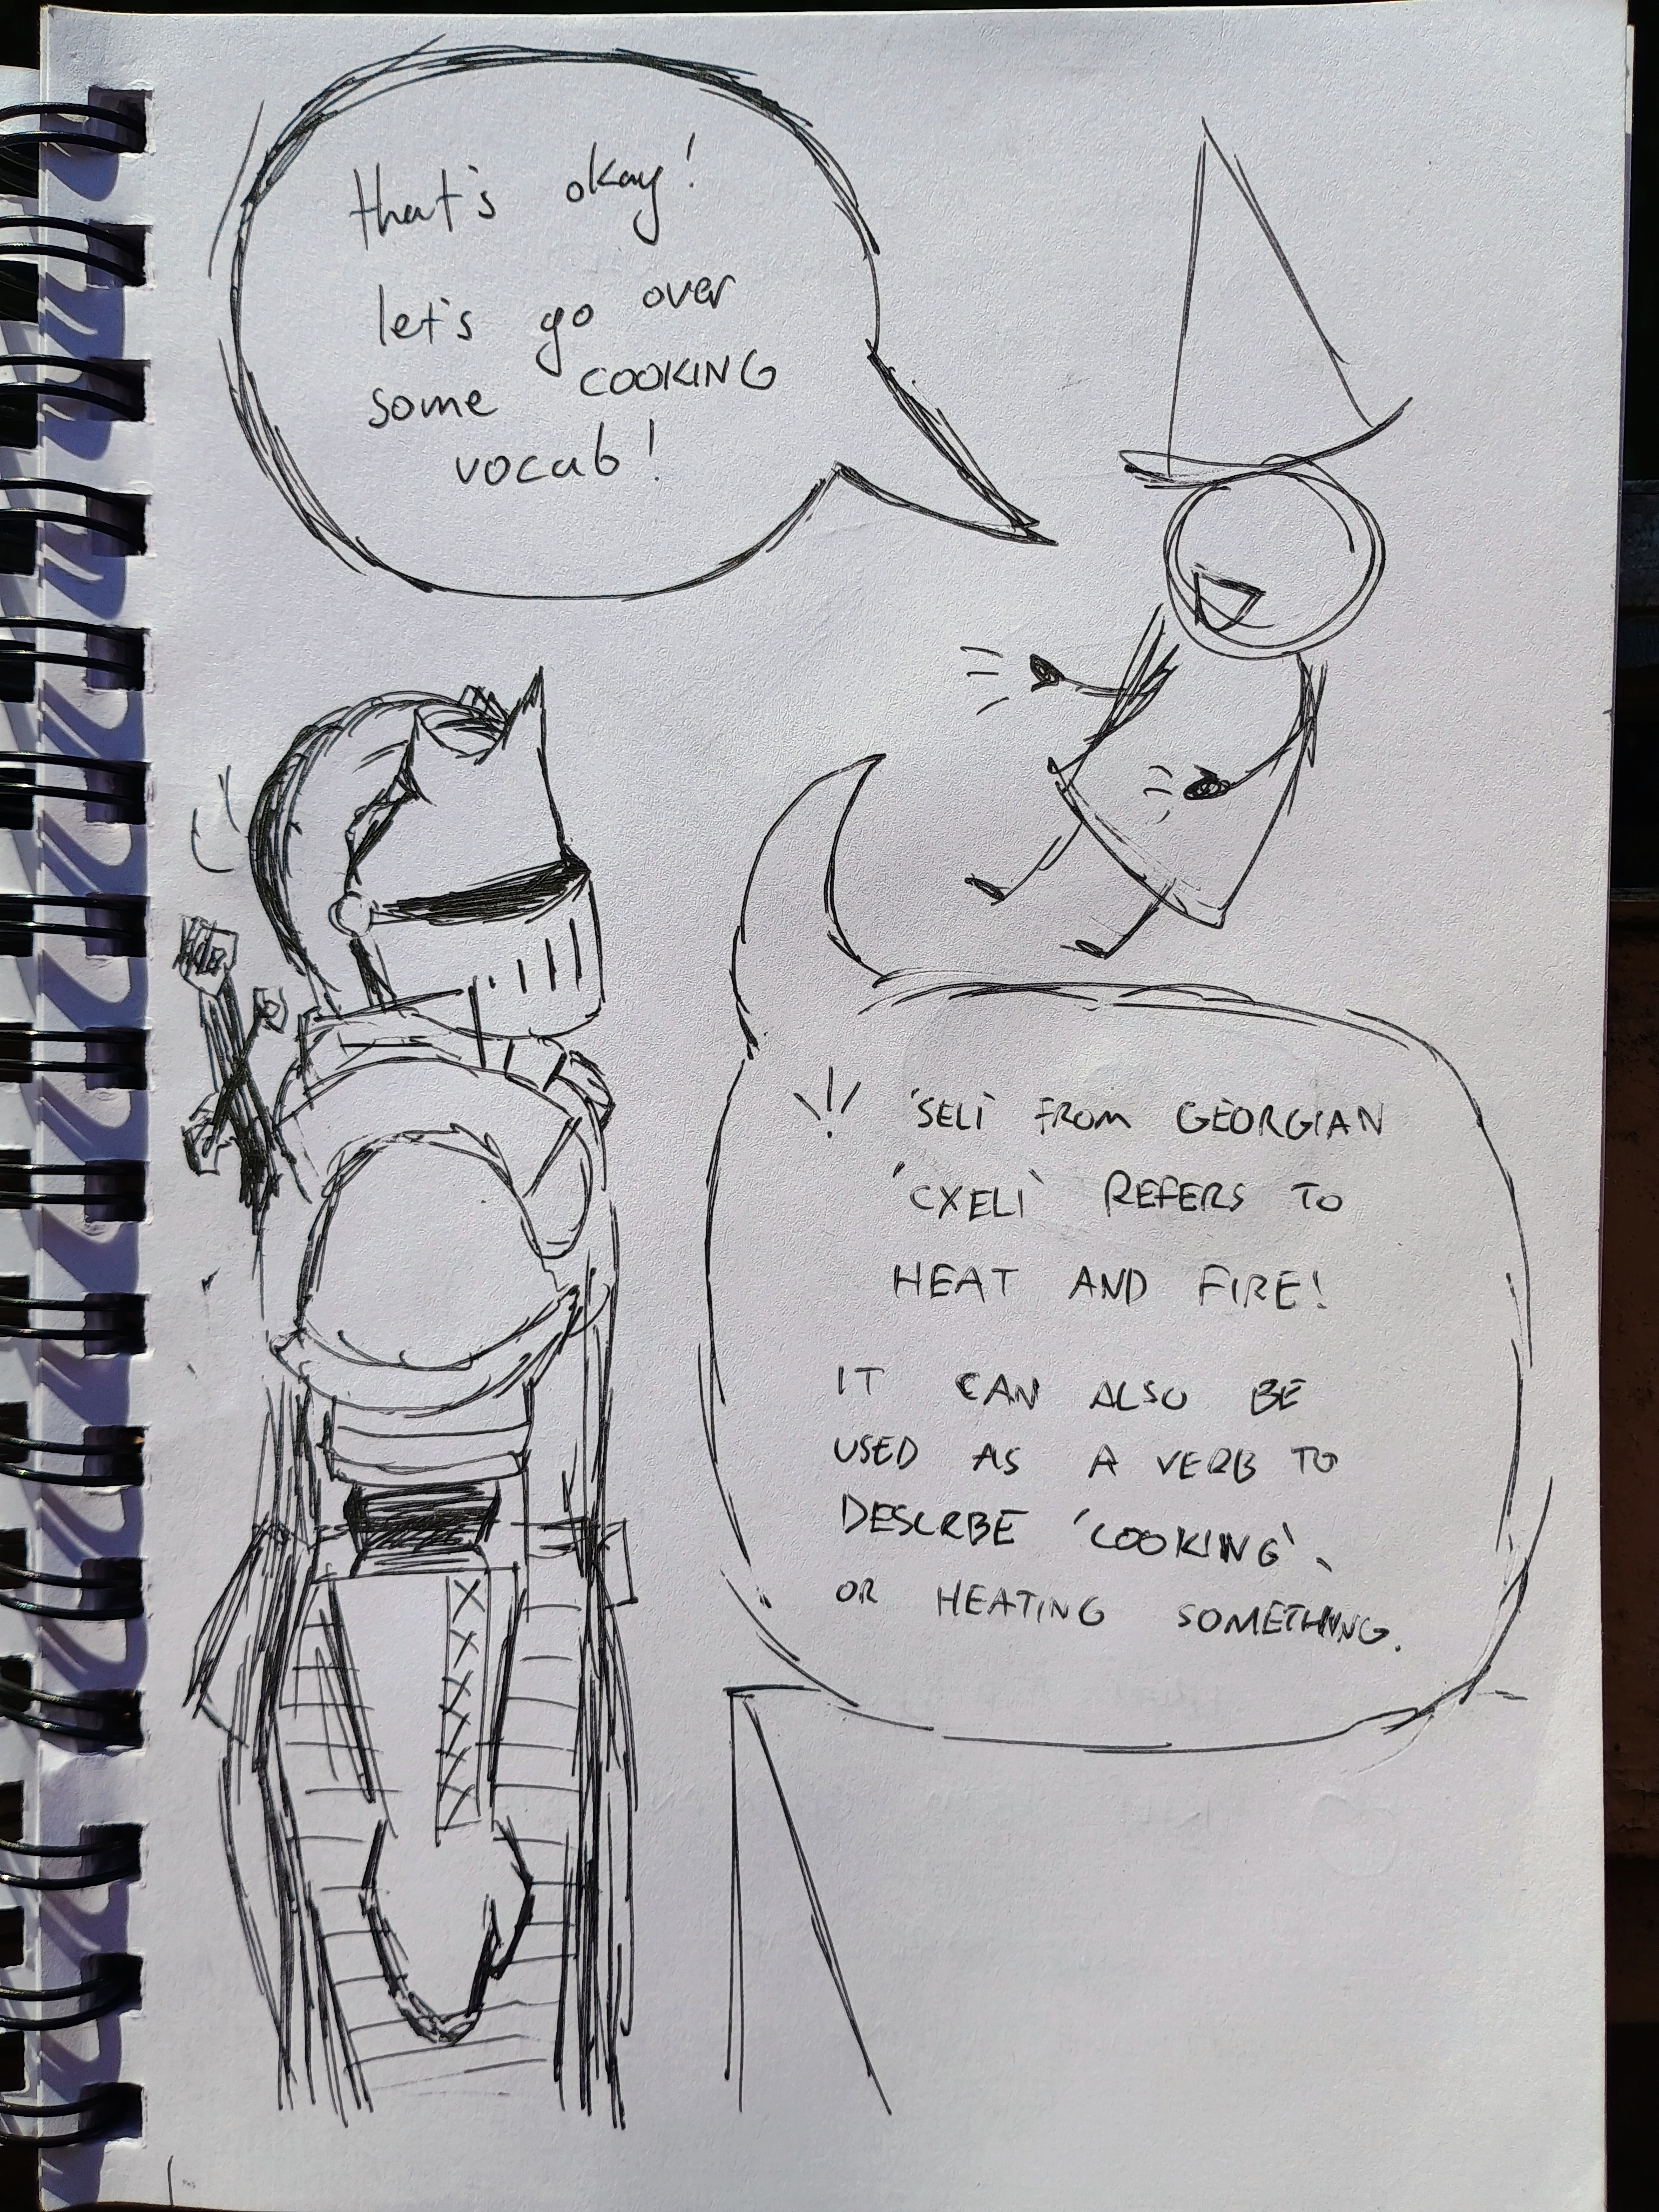 that's okay!
let's go over
some COOKING
vocab!
'SELI' FROM GEORGIAN
'CXELI' REFERS TO
HEAT AND FIRE!
IT CAN ALSO BE
USED AS A VERB TO
DESCRBE 'COOKING',
OR HEATING SOMETHING.